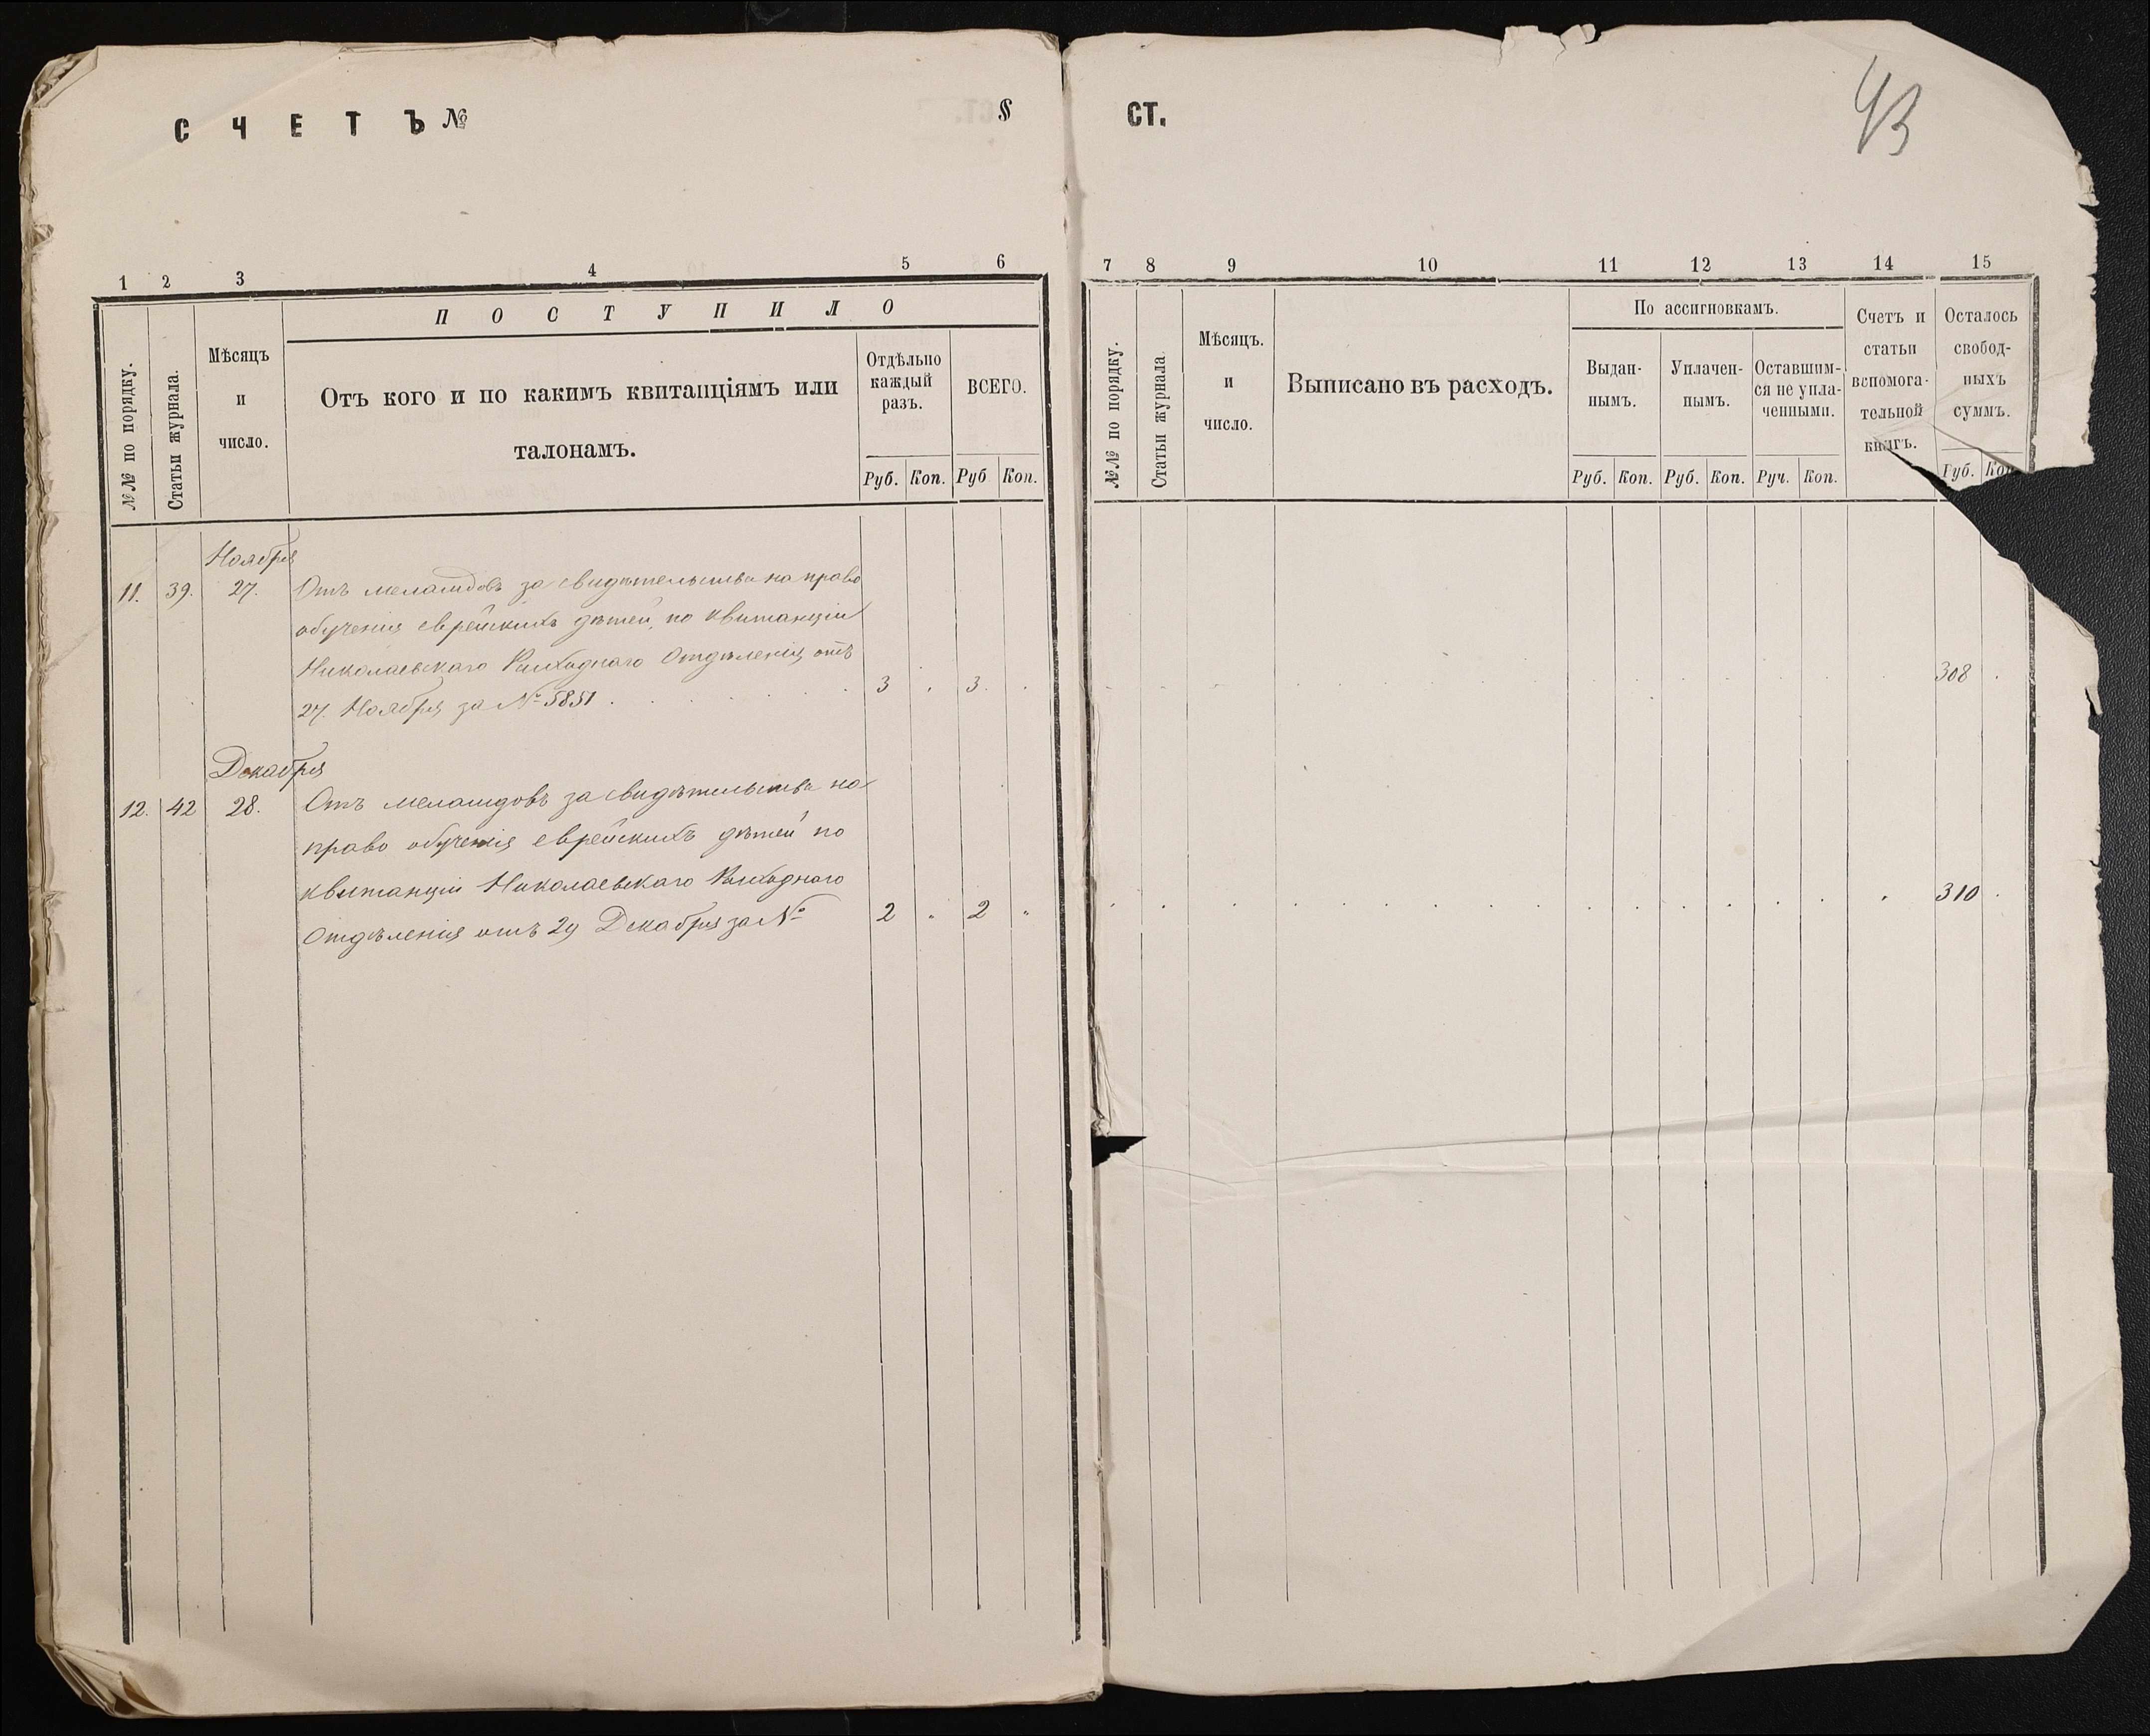 СЧЕТЪ №
§
СТ.
43
1 2 3 4 5 6
7 8 9 10 11 12 13 14 15
№№ по порядку.
Статьи журнала.
Мѣсяцъ
и
число.
ПОСТУПИЛО
Отъ кого и по какимъ квитанціямъ или
талонамъ.
Отдѣльно
каждый
разъ.
ВСЕГО.
Руб. Коп. Руб Коп.
№№ по порядку.
Статьи журнала.
Мѣсяцъ.
и
число.
Выписано въ расходъ.
По ассигновкамъ.
Выдан-
нымъ.
Уплачен-
нымъ.
Оставшим-
ся не упла-
ченными.
Счетъ и
статьи
вспомога-
тельной
книгъ.
Осталось
свобод-
ныхъ
суммъ.
Руб. Коп. Руб. Коп. Руч. Коп.
Руб. Коп
Ноября
11. 39. 27. Отъ меламдовъ за свидѣтельства на право
обученія еврейскихъ дѣтей, по квитанціи
Николаевскаго Расходнаго Отдѣленія отъ
27. Ноября за № 5851 . . . . . 3 . 3. . 308 .
Декабря
12. 42 28. Отъ меламдовъ за свидѣтельства на
право обученія еврейскихъ дѣтей по
квитанціи Николаевскаго Расходнаго
Отдѣленія отъ 29 Декабря за № 2 „ 2 „ 310 .